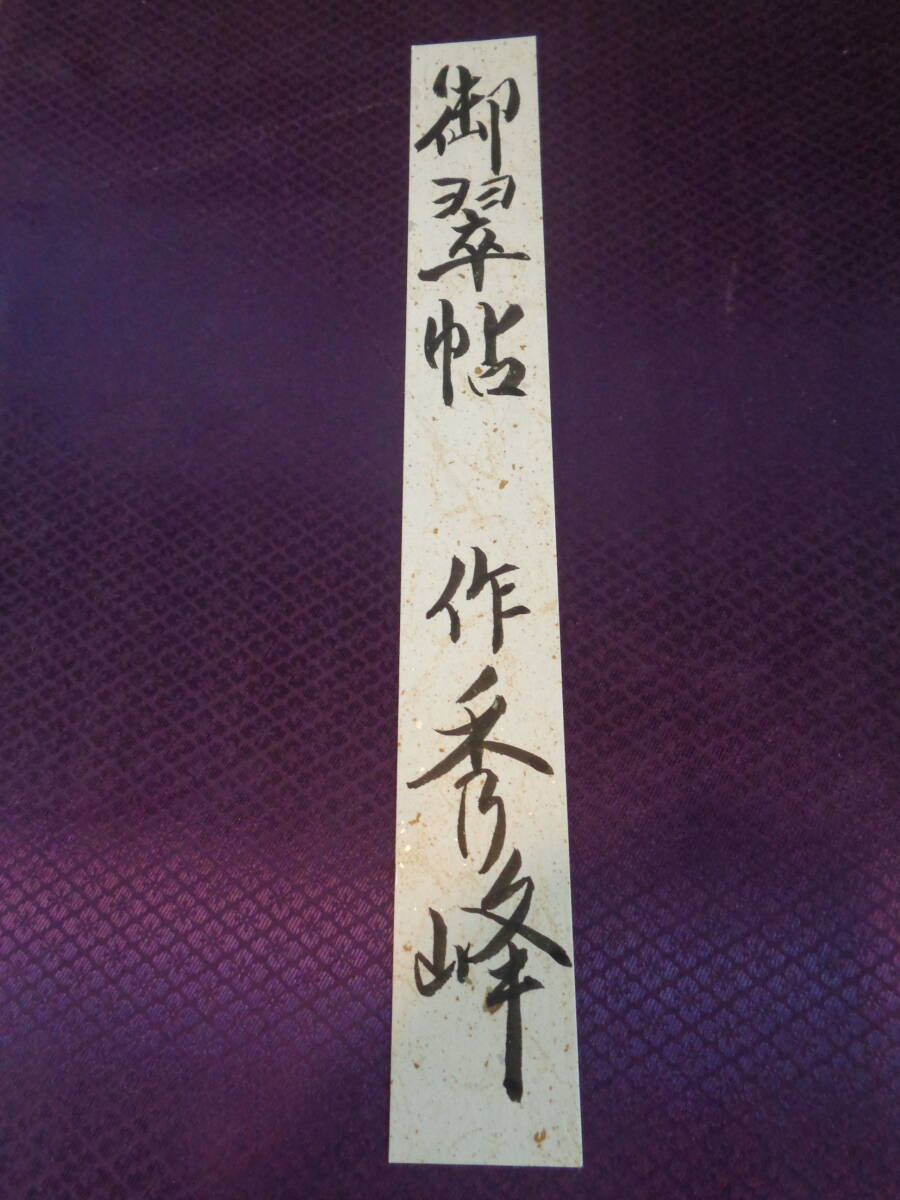 御翠帖 作秀峰